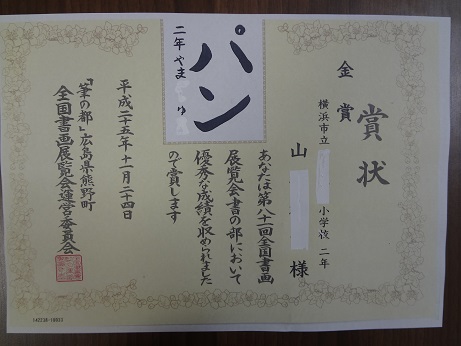 賞状
金賞
横浜市立 小学校 二年
山 様
あなたは第八十一回全国書画
展覧会書の部において
優秀な成績を収められました
ので賞します
平成二十五年十一月二十四日
「筆の都」広島県熊野町
全国書画展覧会運営委員会
パン
二年 やま ゆ